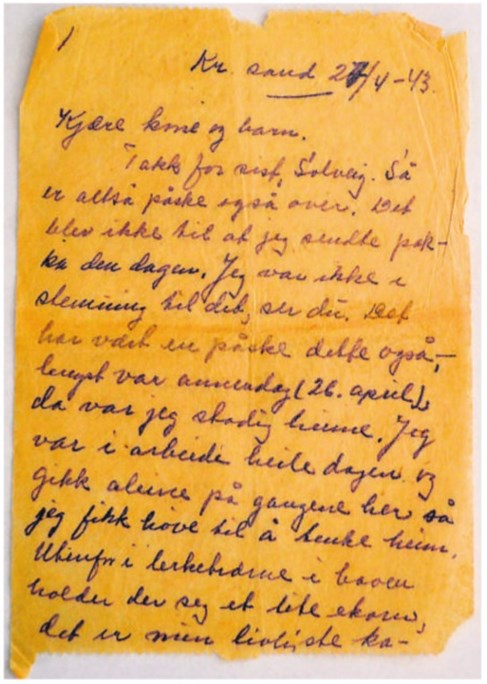 1
Kr. sand 27/4-43.
Kjære kone og barn.
Takk for sist, Solveig. Så
er altså påske også over. Det
blev ikke til at jeg sendte pak-
ka den dagen. Jeg var ikke i
stemning til det, ser du. Det
har vært en påske dette også,-
lengst var annendag (26. april),
da var jeg stadig heime. Jeg
var i arbeide heile dagen og
gikk aleine på gangene her så
jeg fikk høve til å tenke heim.
Utenfor i lerketrærne i haven
holder der seg et lite ekorn,
det er min livligste ka-